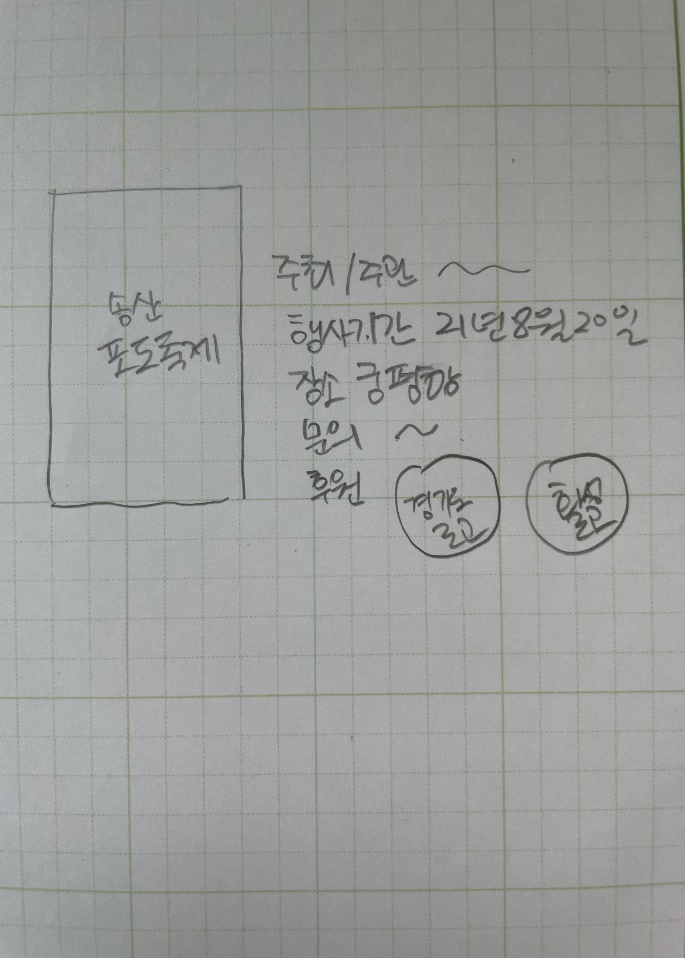 송산
포도축제
주최/주관 ~
행사기간 21년8월20일
장소 궁평항
문의 ~
후원
경기도
로고
화성
로고